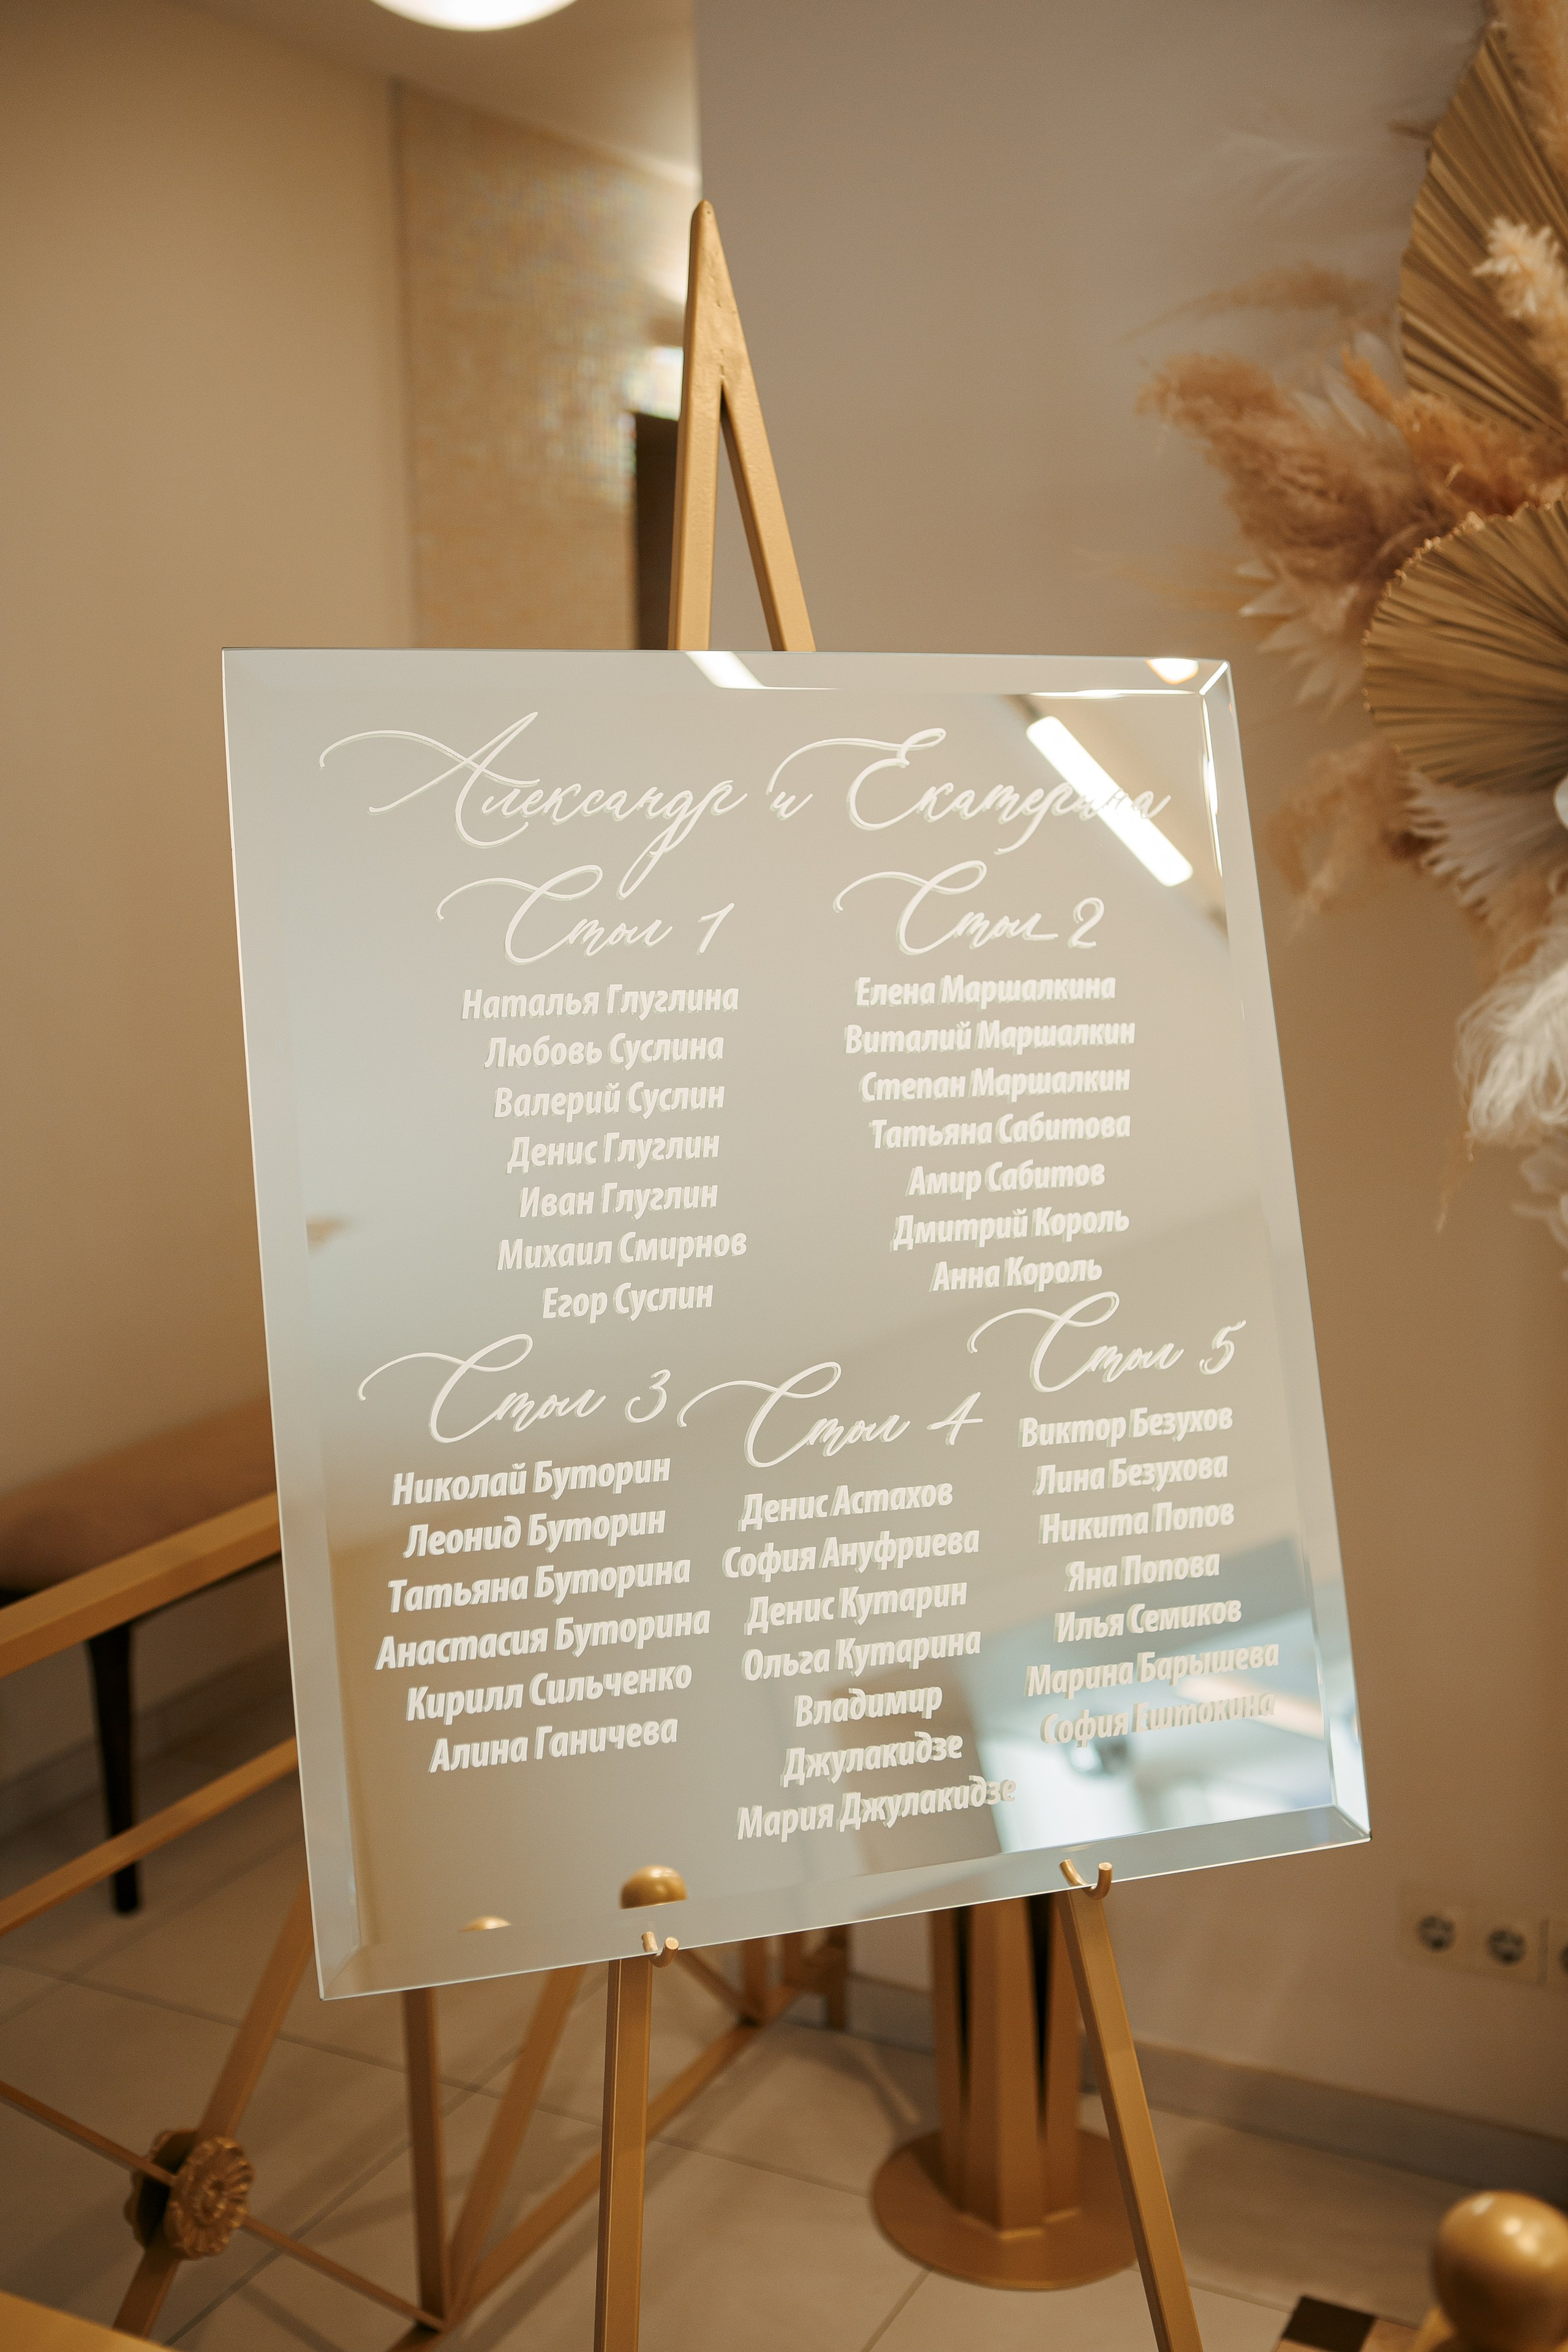 Александр и Екатерина
Стол 1
Наталья Глуглина
Любовь Суслина
Валерий Суслин
Денис Глуглин
Иван Глуглин
Михаил Смирнов
Егор Суслин
Стол 2
Елена Маршалкина
Виталий Маршалкин
Степан Маршалкин
Татьяна Сабитова
Амир Сабитов
Дмитрий Король
Анна Король
Стол 3
Николай Буторин
Леонид Буторин
Татьяна Буторина
Анастасия Буторина
Кирилл Сильченко
Алина Ганичева
Стол 4
Денис Астахов
София Ануфриева
Денис Кутарин
Ольга Кутарина
Владимир
Джулакидзе
Мария Джулакидзе
Стол 5
Виктор Безухов
Лина Безухова
Никита Попов
Яна Попова
Илья Семиков
Марина Барышева
София Ештокина